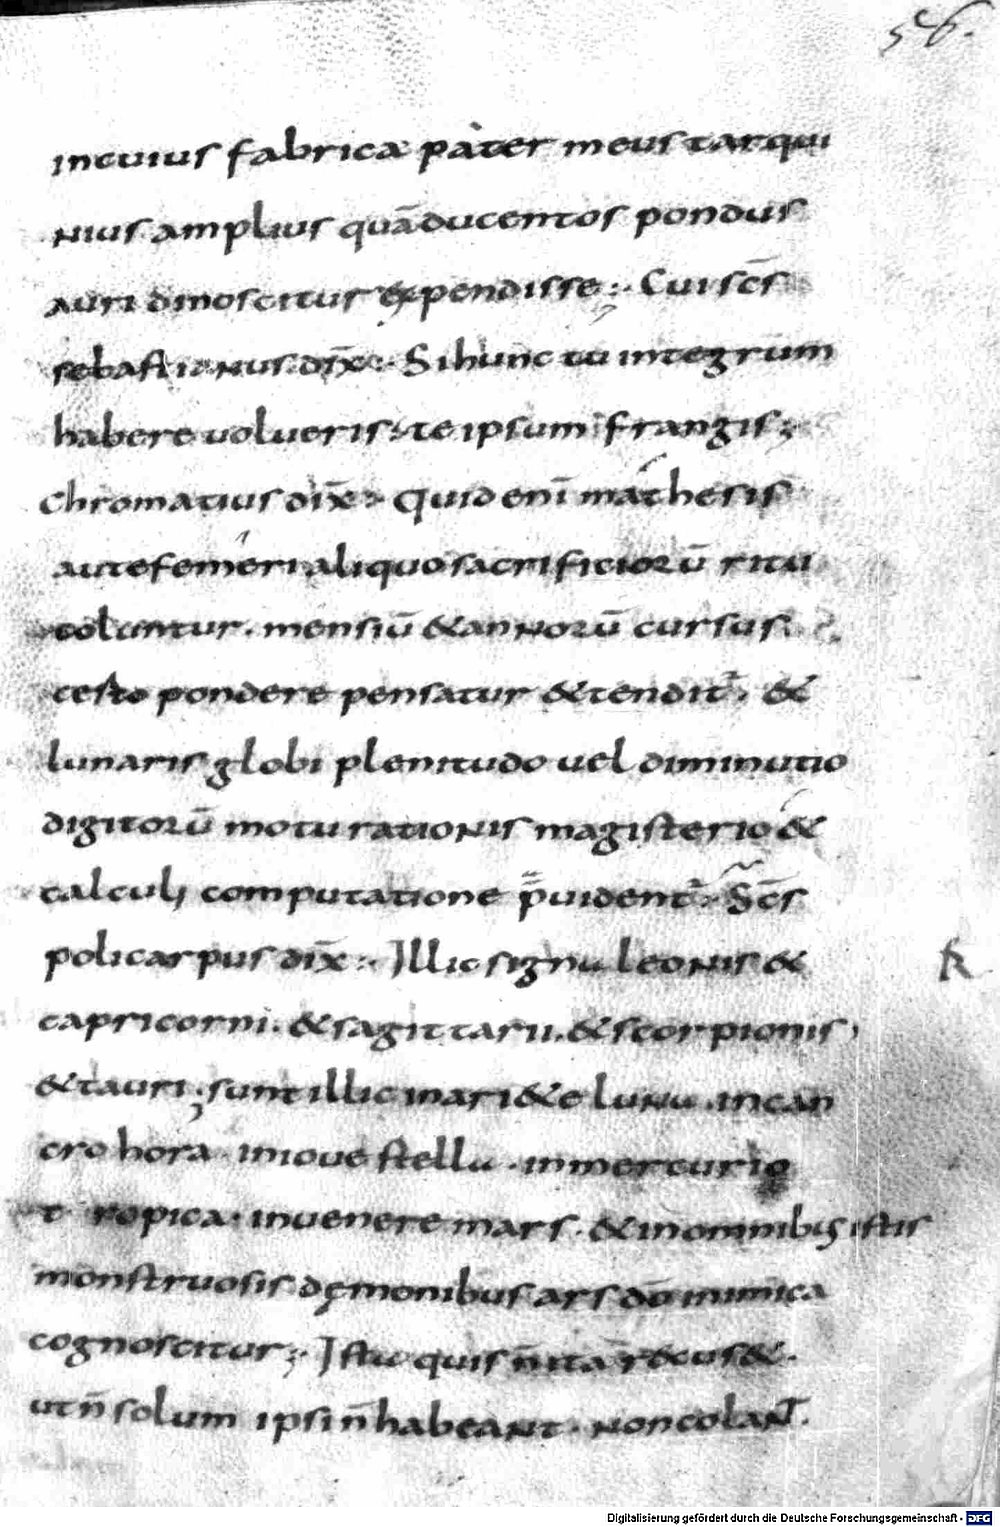 56.
incuius fabrica pater meus tarqui
nius amplius quā ducentos pondus
auri dinoscitur expendisse; Cui scs̄
sebastianus dix̄; Si hunc tu integrum
habere uolueris; te ipsum frangis;
Chromatius dix̄; Quid enī mathesis
aut efemeri aliquo sacrificiorū ritu
coluntur. mensiū & annorū cursus
certo pondere pensatur & tendit̄. &
lunaris globi plenitudo uel diminutio
digitorū motu rationis magisterio &
calculi computatione p̄uident̄. Sc̄s
policarpus dix̄; Illic signu leonis &
capricorni. & sagittarii. & scorpionis
& tauri; sunt illic in ari&e luna. in can
cro hora. in ioue stella. in mercurio
t ropica. in uenere mars. & in omnibus istis
monstruosis dęmonibus ars dō inimica
cognoscitur; Ista quis n̄ ita r&cus&.
ut n̄ solum ipsi n̄ habeant. non colant.
R
Digitalisierung gefördert durch die Deutsche Forschungsgemeinschaft - DFG